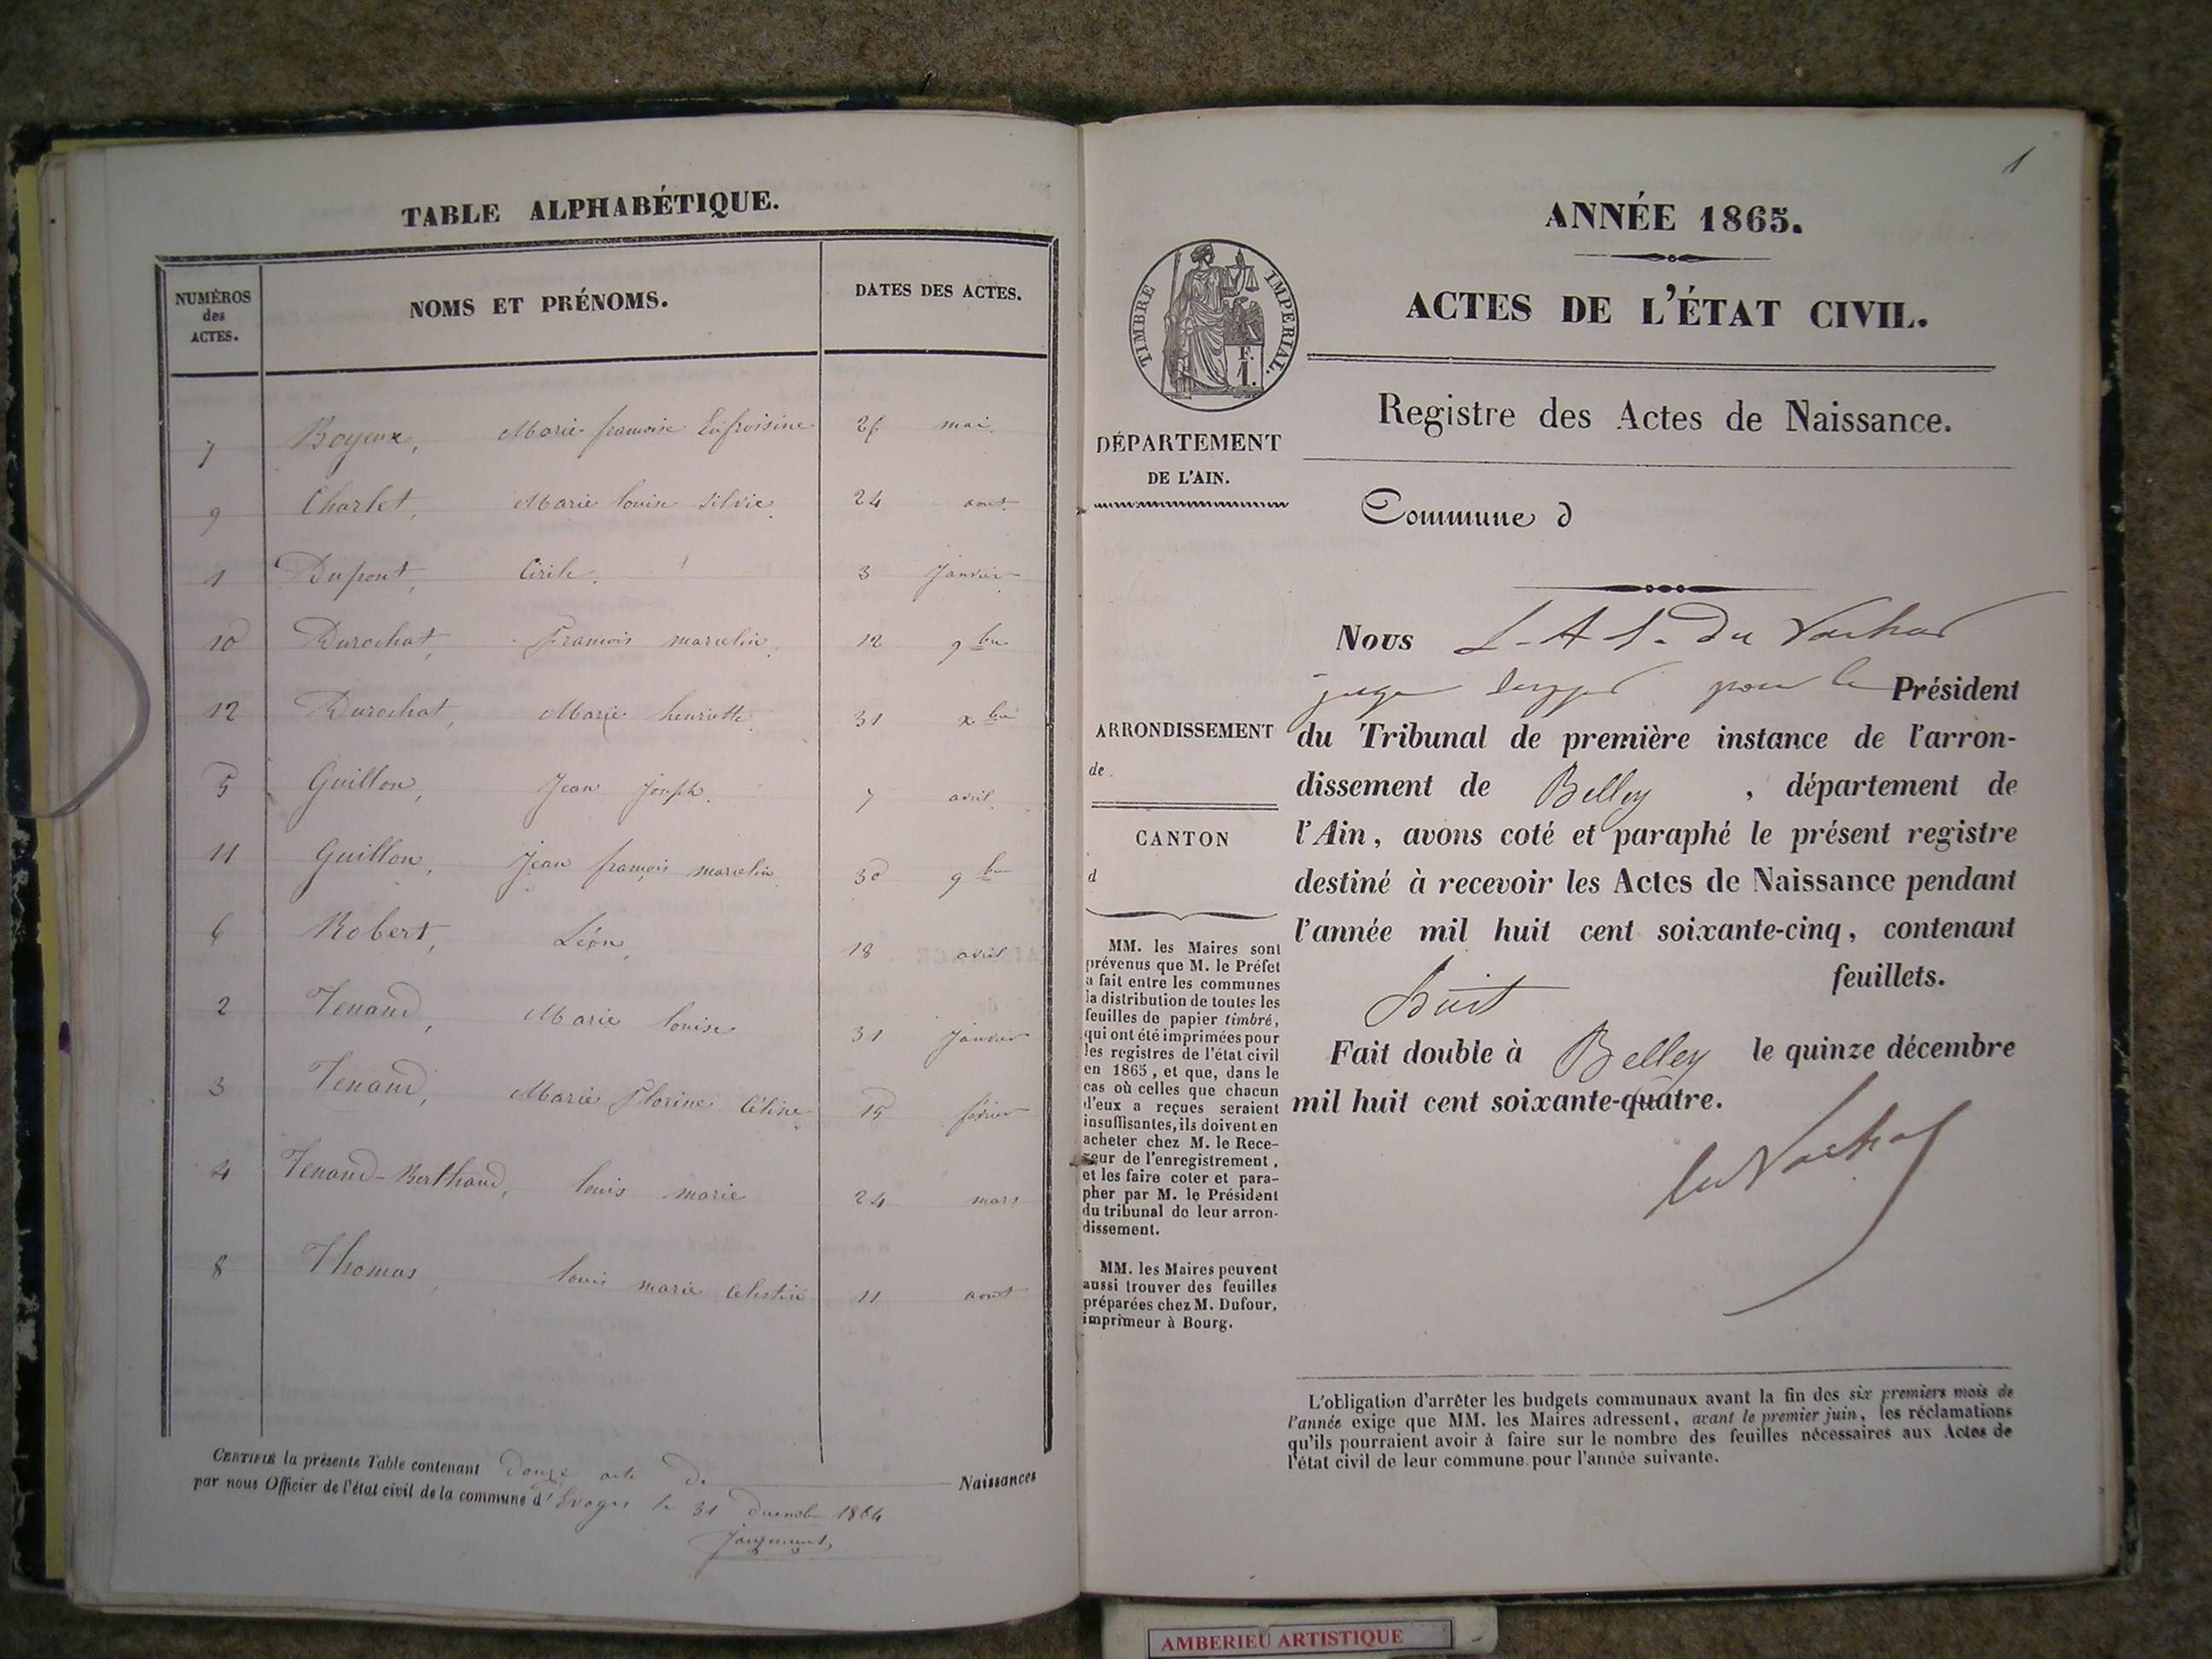 TABLE ALPHABÉTIQUE.
NUMÉROS des ACTES.
NOMS ET PRÉNOMS.
DATES DES ACTES.
7 Boyeux, Marie françoise Eufroisine mai
9 Charlet, Marie louise Silvie 24 aout
1 Dupont, Cirile. 3 Janvier
10 Durochat, François marcelin 12 9bre
12 Durochat, Marie henriette 31 xbre
5 Guillon, Jean Joseph. 7 avril
11 Guillon, Jean françois marcelin 30 9bre
6 Robert, Léon, 18 avril
2 Tenand, Marie louise 31 Janvier
3 Tenand, Marie Florine Céline 15 février
4 Tenand-Berthaud, louis marie 24 mars
8 Thomas, louis marie Célestin 11 aout
CERTIFIÉ la présente Table contenant douze acte de Naissances
par nous Officier de l'état civil de la commune d'Evoges le 31 décembre 1864
1
ANNÉE 1865.
ACTES DE L'ÉTAT CIVIL.
TIMBRE IMPÉRIAL.
F.
1.
Registre des Actes de Naissance.
DÉPARTEMENT
DE L'AIN.
Commune d
Nous L-A du Vachat
juge pour le Président
ARRONDISSEMENT
de
CANTON
d
du Tribunal de première instance de l'arron-
dissement de Belley, département de
l'Ain, avons coté et paraphé le présent registre
destiné à recevoir les Actes de Naissance pendant
l'année mil huit cent soixante-cinq, contenant
huit feuillets.
Fait double à Belley le quinze décembre
mil huit cent soixante-quatre.
du Vachat
MM. les Maires sont
prévenus que M. le Préfet
a fait entre les communes
la distribution de toutes les
feuilles de papier timbré,
qui ont été imprimées pour
les registres de l'état civil
en 1865, et que, dans le
cas où celles que chacun
d'eux a reçues seraient
insuffisantes, ils doivent en
acheter chez M. le Rece-
veur de l'enregistrement,
et les faire coter et para-
pher par M. le Président
du tribunal de leur arron-
dissement.
MM. les Maires peuvent
aussi trouver des feuilles
préparées chez M. Dufour,
imprimeur à Bourg.
L'obligation d'arrêter les budgets communaux avant la fin des six premiers mois de
l'année exige que MM. les Maires adressent, avant le premier juin, les réclamations
qu'ils pourraient avoir à faire sur le nombre des feuilles nécessaires aux Actes de
l'état civil de leur commune pour l'année suivante.
AMBERIEU ARTISTIQUE